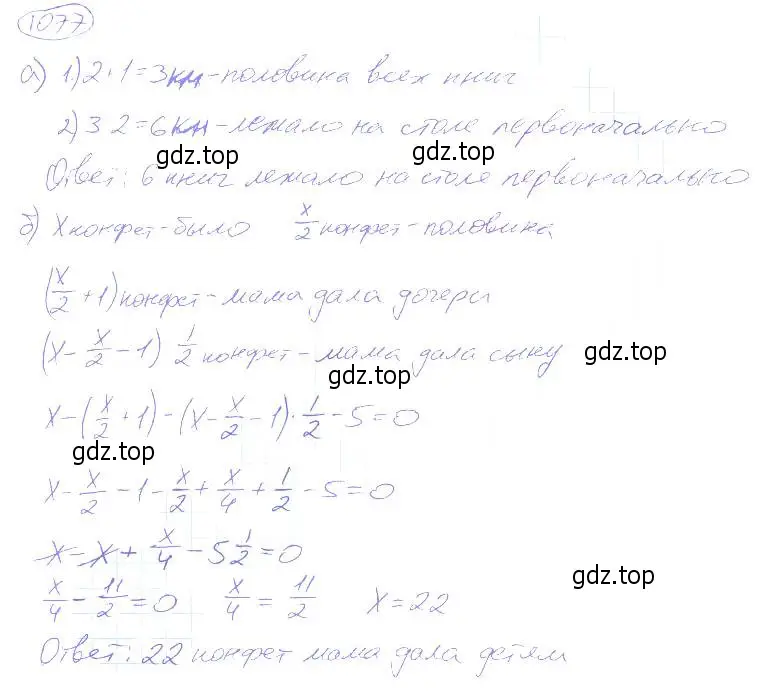 1077
а) 1) 2 + 1 = 3 кн - половина всех книг
2) 3 · 2 = 6 кн - лежало на столе первоначально
gdz.top gdz.top
Ответ: 6 книг лежало на столе первоначально
б) x конфет - было x/2 конфет - половина
(x/2 + 1) конфет - мама дала дочери
(x - x/2 - 1) 1/2 конфет - мама дала сыну gdz.top
gdz.top
x - (x/2 + 1) - (x - x/2 - 1) · 1/2 - 5 = 0
gdz.top
x - x/2 - 1 - x/2 + x/4 + 1/2 - 5 = 0
x - x + x/4 - 5 1/2 = 0
gdz.top
x/4 - 11/2 = 0 x/4 = 11/2 x = 22
Ответ: 22 конфет мама дала детям